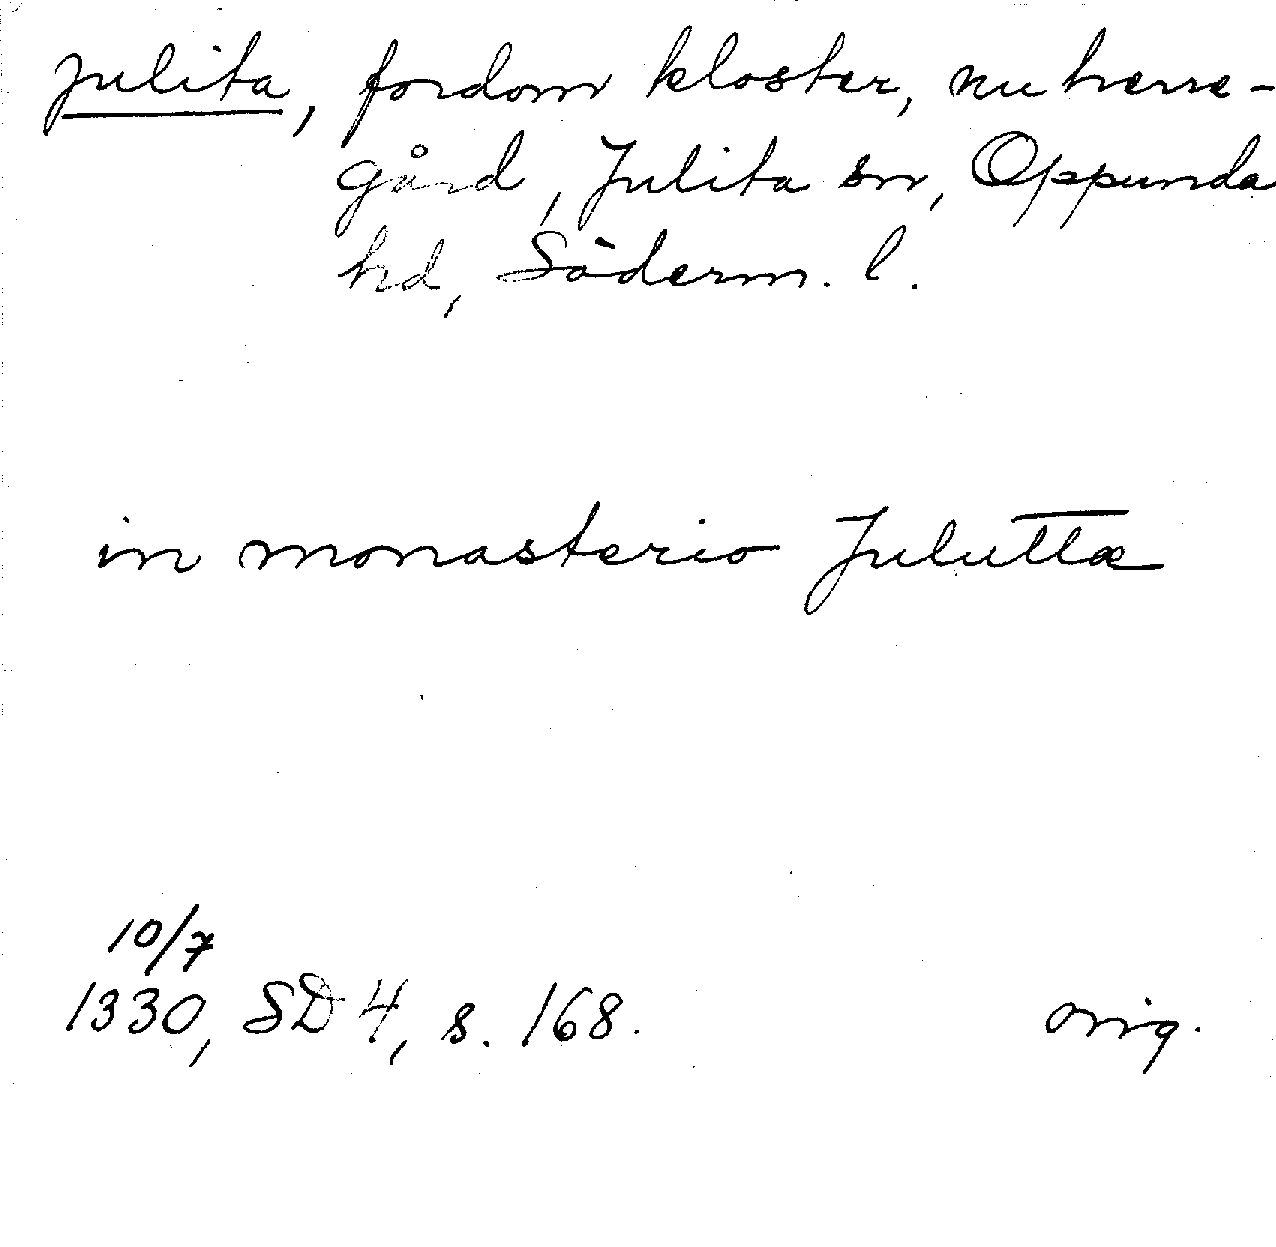 Julita, fordom kloster, nu herre-
gård, Julita sn, Oppunda
hd, Söderm. l.
in monasterio Juluttæ
10/7
1330, SD 4, s. 168.
orig.